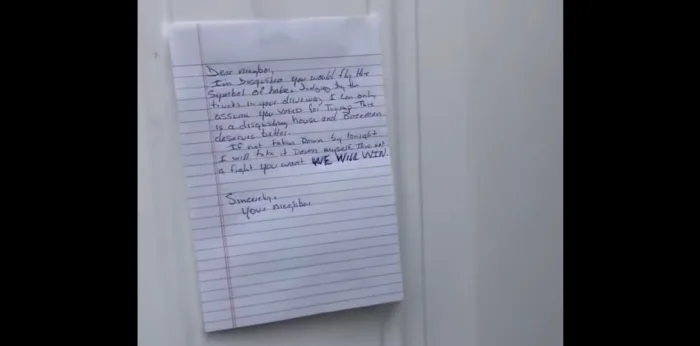 Dear neighbor,
I'm Disgusted you would fly this
Symbol of hate. Judging by the
trucks in your driveway I can only
assume you voted for Trump. This
is a disgusting house and Bozeman
deserves better.
If not taken Down by tonight
I will take it Down myself. This not
a fight you want WE WILL WIN
Sincerely,
Your neighbor